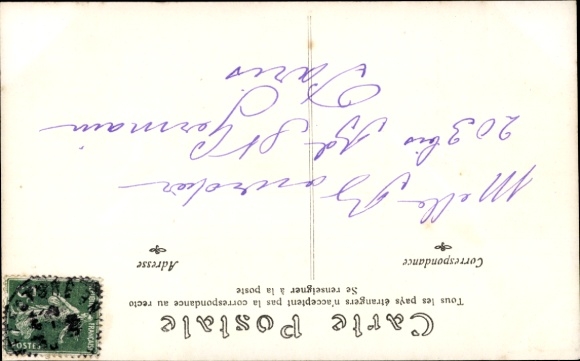 Carte Postale
Tous les pays étrangers n'acceptent pas la correspondance au recto
Se renseigner à la poste
Correspondance
Adresse
Melle
203 bis Bd St Germain
Paris